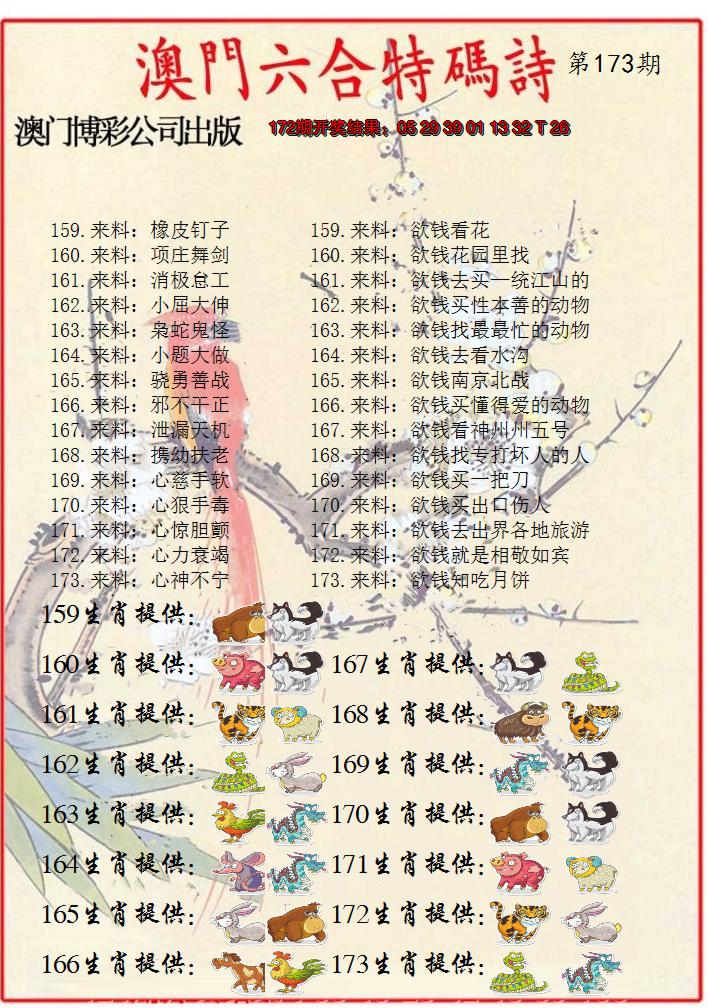 澳門六合特碼詩 第173期
澳门博彩公司出版 172期开奖结果：05 29 39 01 13 32 T 26
159.来料：橡皮钉子 159.来料：欲钱看花
160.来料：项庄舞剑 160.来料：欲钱花园里找
161.来料：消极怠工 161.来料：欲钱去买一统江山的
162.来料：小屈大伸 162.来料：欲钱买性本善的动物
163.来料：枭蛇鬼怪 163.来料：欲钱找最最忙的动物
164.来料：小题大做 164.来料：欲钱去看水沟
165.来料：骁勇善战 165.来料：欲钱南京北战
166.来料：邪不干正 166.来料：欲钱买懂得爱的动物
167.来料：泄漏天机 167.来料：欲钱看神州州五号
168.来料：携幼扶老 168.来料：欲钱找专打坏人的人
169.来料：心慈手软 169.来料：欲钱买一把刀
170.来料：心狠手毒 170.来料：欲钱买出口伤人
171.来料：心惊胆颤 171.来料：欲钱去出界各地旅游
172.来料：心力衰竭 172.来料：欲钱就是相敬如宾
173.来料：心神不宁 173.来料：欲钱知吃月饼
159生肖提供：
160生肖提供： 167生肖提供：
161生肖提供： 168生肖提供：
162生肖提供： 169生肖提供：
163生肖提供： 170生肖提供：
164生肖提供： 171生肖提供：
165生肖提供： 172生肖提供：
166生肖提供： 173生肖提供：